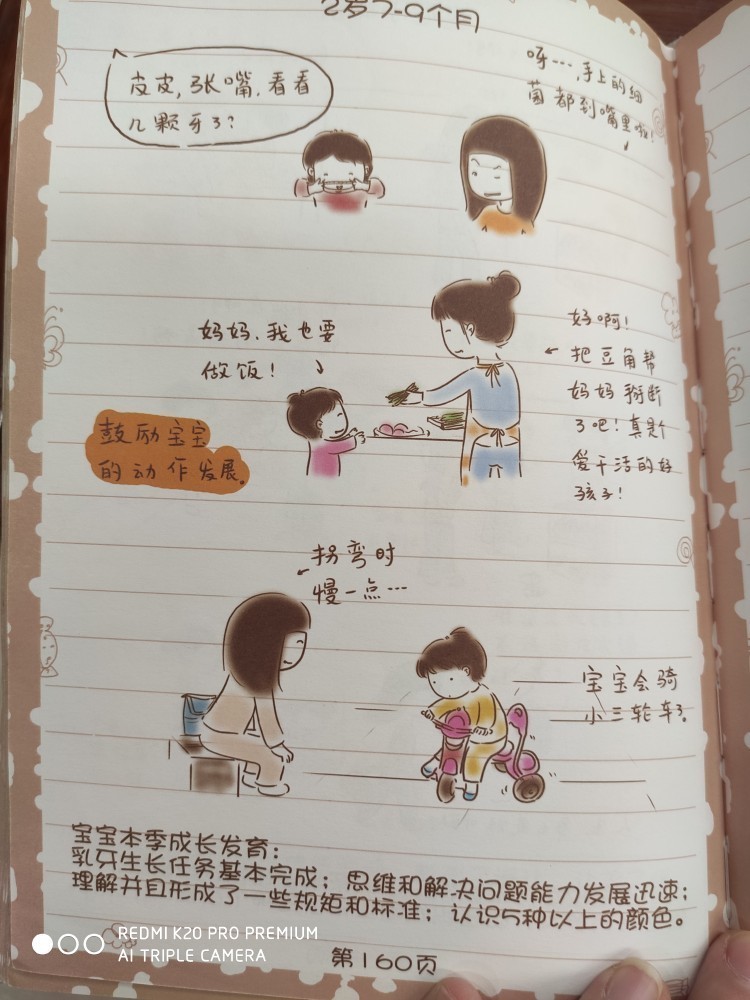 2岁7-9个月
皮皮,张嘴,看看
几颗牙了?
呀…,手上的细
菌都到嘴里啦!
妈妈,我也要
做饭!
好啊!
把豆角帮
妈妈掰断
了吧!真是个
爱干活的好
孩子!
鼓励宝宝
的动作发展。
拐弯时
慢一点…
宝宝会骑
小三轮车了。
宝宝本季成长发育:
乳牙生长任务基本完成;思维和解决问题能力发展迅速;
理解并且形成了一些规矩和标准;认识5种以上的颜色。
第160页
REDMI K20 PRO PREMIUM
AI TRIPLE CAMERA